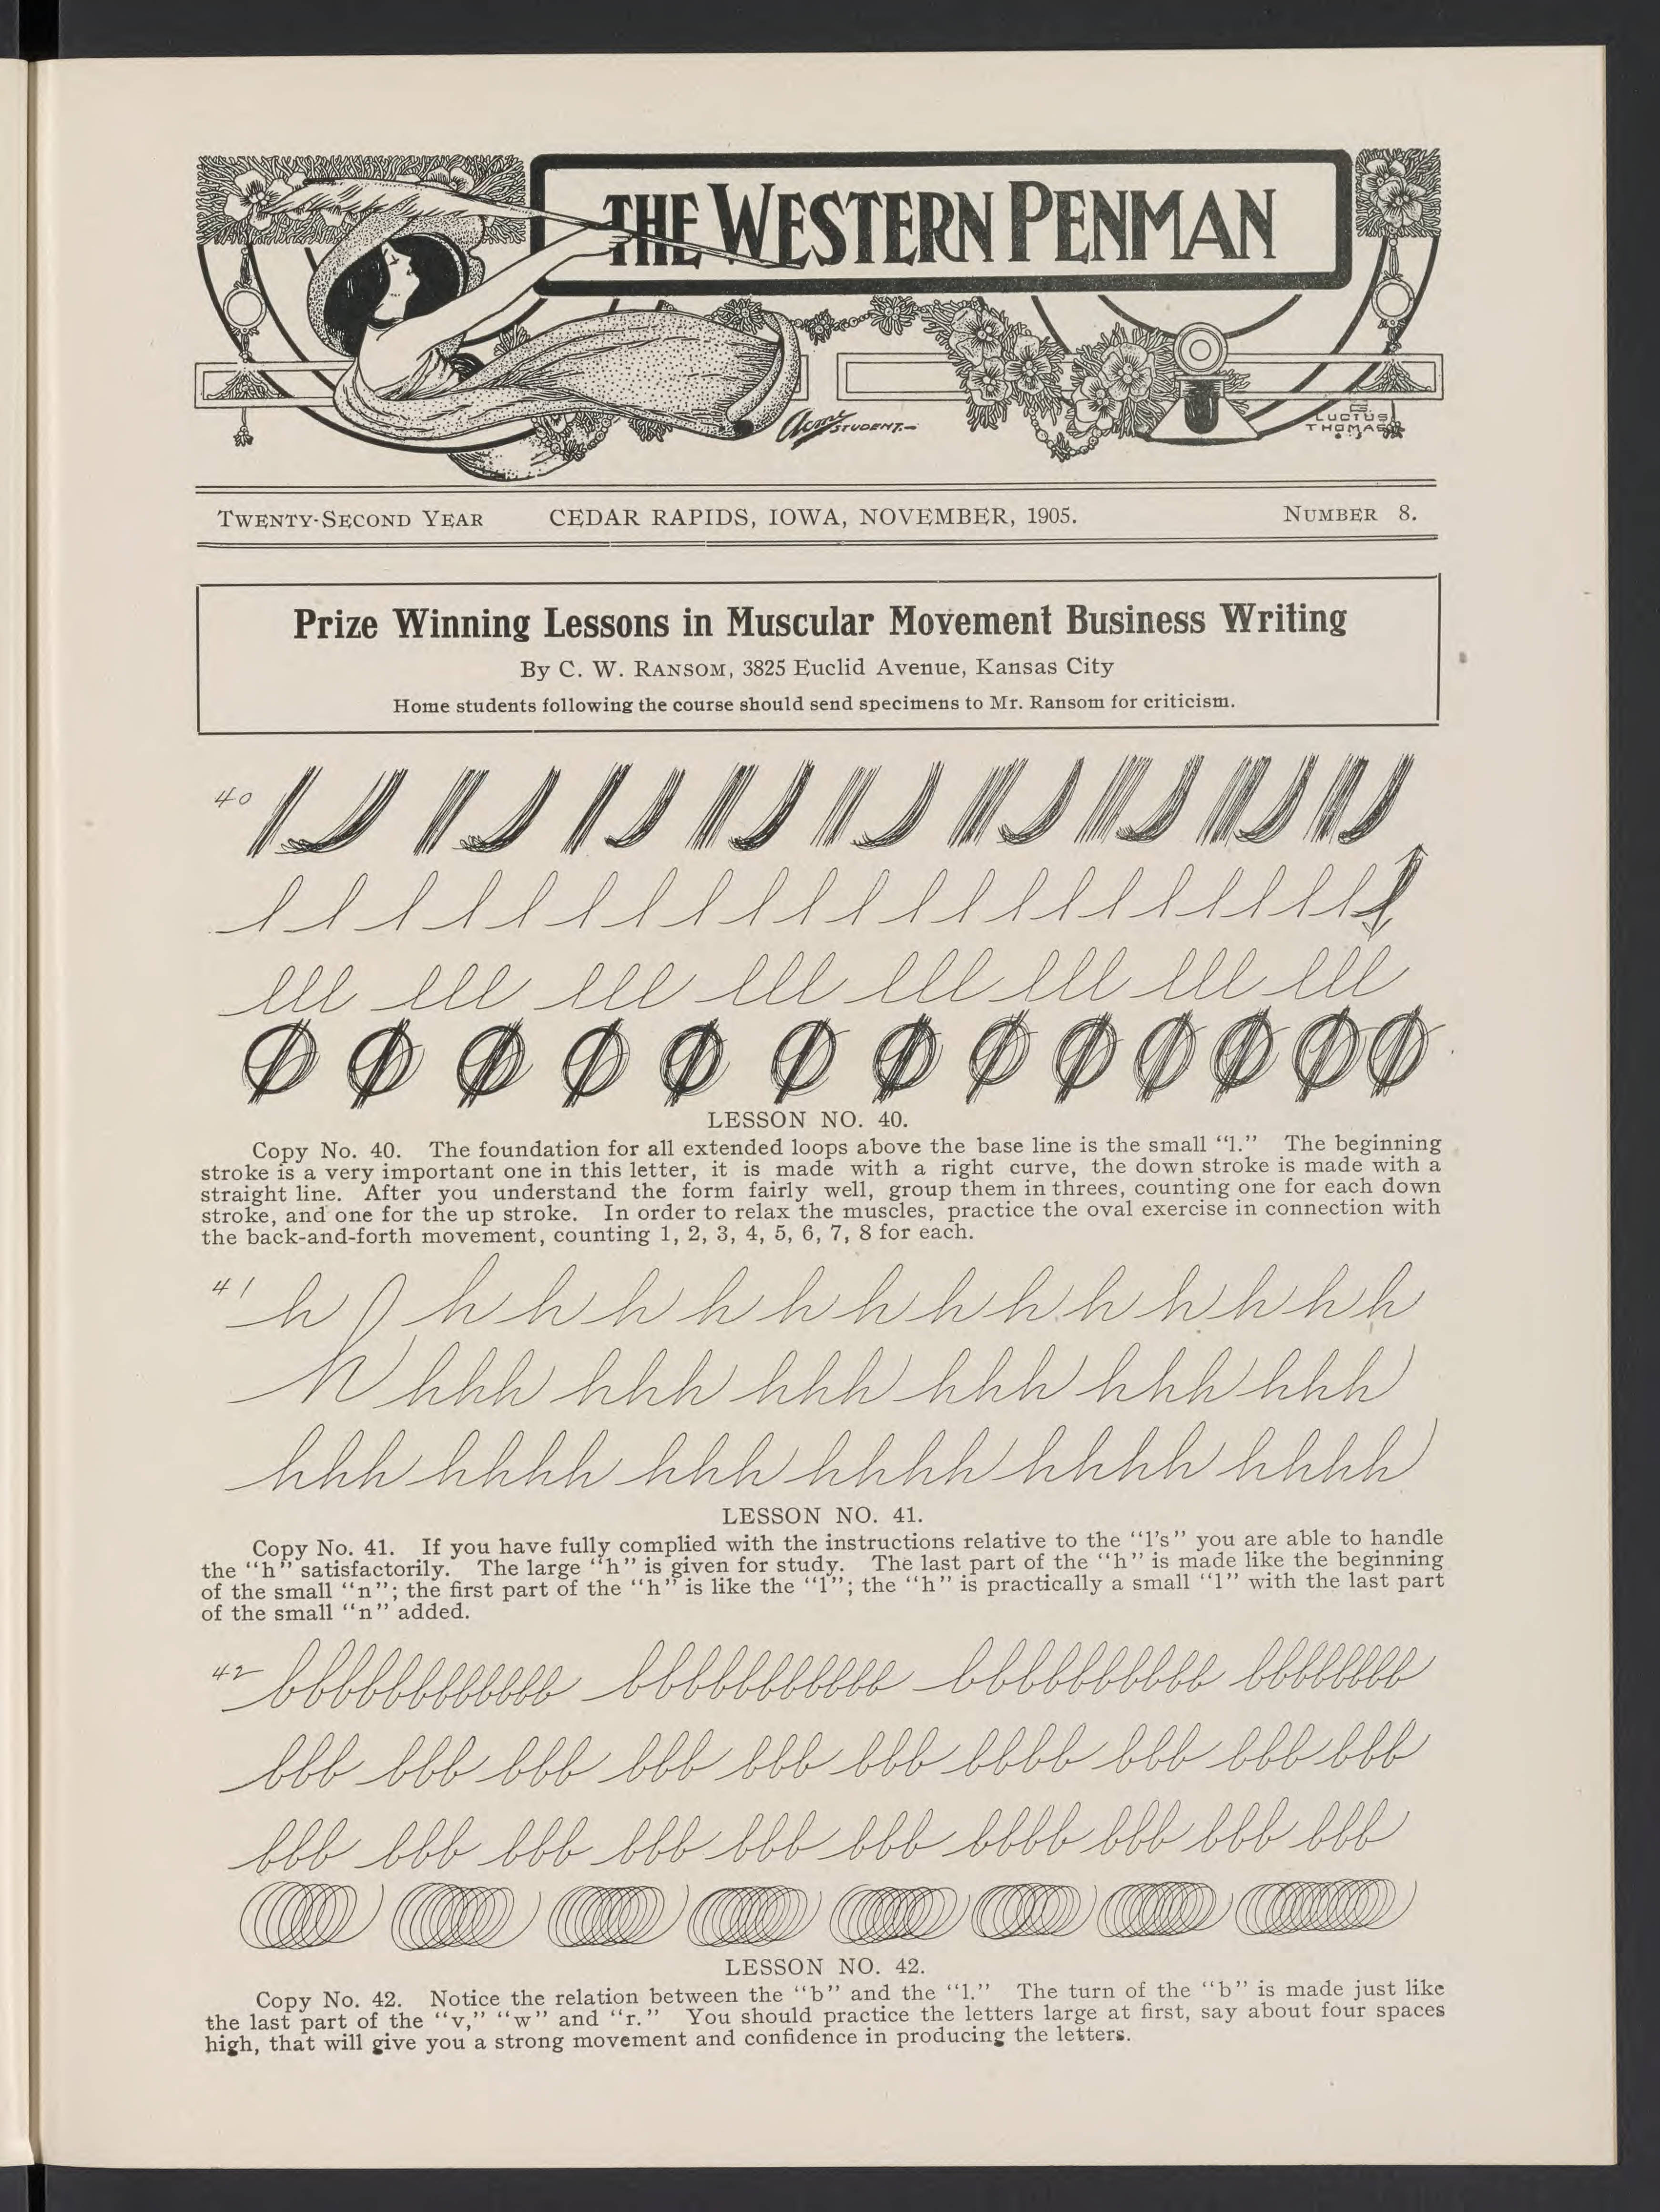 THE WESTERN PENMAN
Acme STUDENT.-
LUCIUS
THOMAS
TWENTY-SECOND YEAR CEDAR RAPIDS, IOWA, NOVEMBER, 1905. NUMBER 8.
Prize Winning Lessons in Muscular Movement Business Writing
By C. W. RANSOM, 3825 Euclid Avenue, Kansas City
Home students following the course should send specimens to Mr. Ransom for criticism.
40
l l l l l l l l l l l l l l l l l l l l l l l l
lll lll lll lll lll lll lll lll
LESSON NO. 40.
Copy No. 40. The foundation for all extended loops above the base line is the small “l.” The beginning
stroke is a very important one in this letter, it is made with a right curve, the down stroke is made with a
straight line. After you understand the form fairly well, group them in threes, counting one for each down
stroke, and one for the up stroke. In order to relax the muscles, practice the oval exercise in connection with
the back-and-forth movement, counting 1, 2, 3, 4, 5, 6, 7, 8 for each.
41 h h h h h h h h h h h h h h
h hhh hhh hhh hhh hhh hhh
hhh hhhh hhh hhhh hhhh hhhh
LESSON NO. 41.
Copy No. 41. If you have fully complied with the instructions relative to the “l’s” you are able to handle
the “h” satisfactorily. The large “h” is given for study. The last part of the “h” is made like the beginning
of the small “n”; the first part of the “h” is like the “l”; the “h” is practically a small “l” with the last part
of the small “n” added.
42 bbbbbbbbbbbb bbbbbbbbbbb bbbbbbbbbb bbbbbbbb
bbb bbb bbb bbb bbb bbb bbbb bbb bbb bbb
bbb bbb bbb bbb bbb bbb bbbb bbb bbb bbb
LESSON NO. 42.
Copy No. 42. Notice the relation between the “b” and the “l.” The turn of the “b” is made just like
the last part of the “v,” “w” and “r.” You should practice the letters large at first, say about four spaces
high, that will give you a strong movement and confidence in producing the letters.